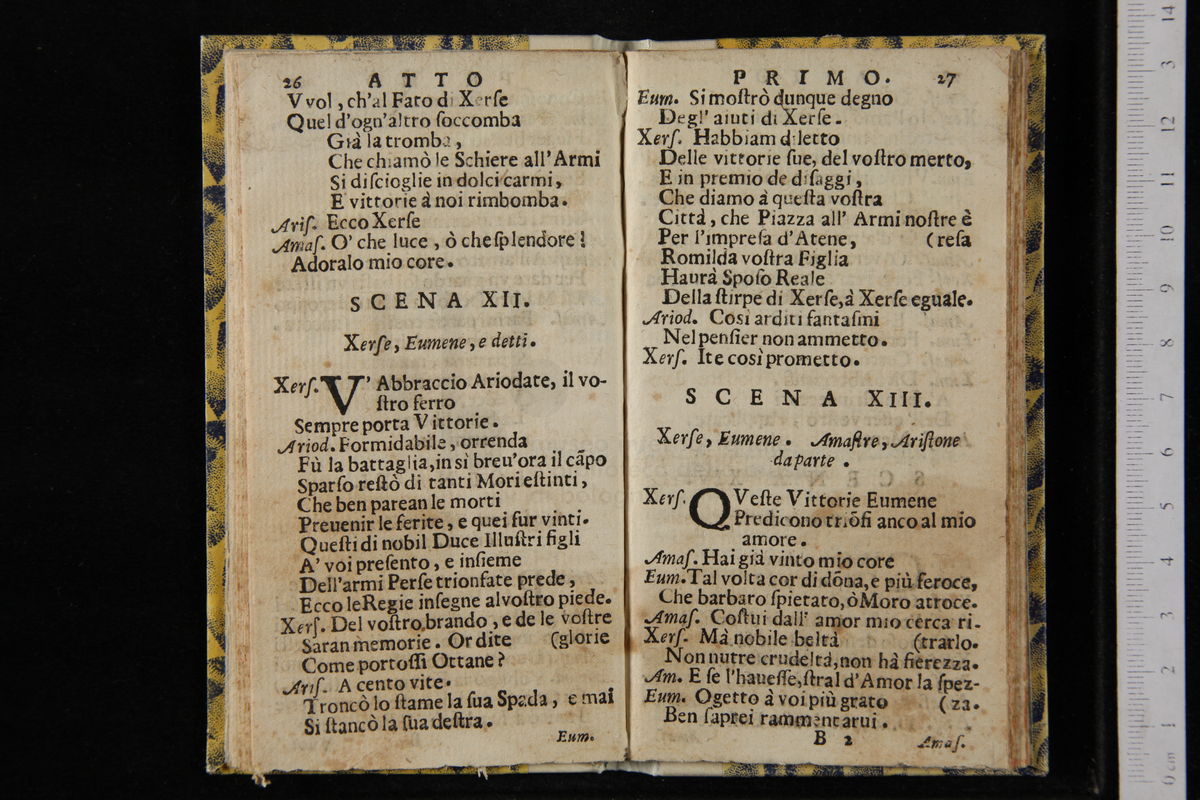 26 ATTO
Vvol, ch'al Fato di Xerſe
Quel d'ogn'altro ſoccomba
Già la tromba,
Che chiamò le Schiere all'Armi
Si diſcioglie in dolci carmi,
E vittorie à noi rimbomba.
Ariſ. Ecco Xerſe
Amaſ. O' che luce, ò che ſplendore!
Adoralo mio core.
SCENA XII.
Xerſe, Eumene, e detti.
Xerſ. V' Abbraccio Ariodate, il vo-
ſtro ferro
Sempre porta Vittorie.
Ariod. Formidabile, orrenda
Fù la battaglia, in sì breu'ora il cãpo
Sparſo reſtò di tanti Mori eſtinti,
Che ben parean le morti
Preuenir le ferite, e quei fur vinti.
Queſti di nobil Duce Illuſtri figli
A' voi preſento, e inſieme
Dell'armi Perſe trionfate prede,
Ecco le Regie inſegne al voſtro piede.
Xerſ. Del voſtro brando, e de le voſtre
Saran memorie. Or dite (glorie
Come portoſſi Ottane?
Ariſ. A cento vite.
Troncò lo ſtame la ſua Spada, e mai
Si ſtancò la ſua deſtra.
Eum.
PRIMO. 27
Eum. Si moſtrò dunque degno
Degl' aiuti di Xerſe.
Xerſ. Habbiam diletto
Delle vittorie ſue, del voſtro merto,
E in premio de diſaggi,
Che diamo à queſta voſtra
Città, che Piazza all' Armi noſtre è
Per l'impreſa d'Atene, (reſa
Romilda voſtra Figlia
Haurà Spoſo Reale
Della ſtirpe di Xerſe, à Xerſe eguale.
Ariod. Così arditi fantaſmi
Nel penſier non ammetto.
Xerſ. Ite così prometto.
SCENA XIII.
Xerſe, Eumene. Amaſtre, Ariſtone
da parte.
Xerſ. QVeſte Vittorie Eumene
Predicono triõfi anco al mio
amore.
Amaſ. Hai già vinto mio core
Eum. Tal volta cor di dõna, e più feroce,
Che barbaro ſpietato, ò Moro atroce.
Amaſ. Coſtui dall' amor mio cerca ri-
Xerſ. Mà nobile beltà (trarlo.
Non nutre crudeltà, non hà fierezza.
Am. E ſe l'haueſſe, ſtral d'Amor la ſpez-
Eum. Ogetto à voi più grato (za.
Ben ſaprei rammentarui.
B 2 Amaſ.
14
3
12
11
10
9
8
7
6
5
4
3
2
1
0 cm